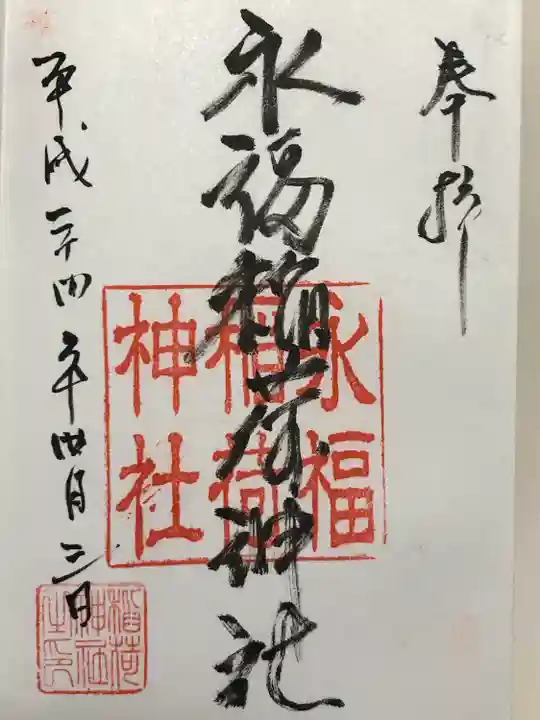 奉拝
永福稲荷神社
永福
稲荷
神社
平成二十四年四月二日
稲荷
神社
之印